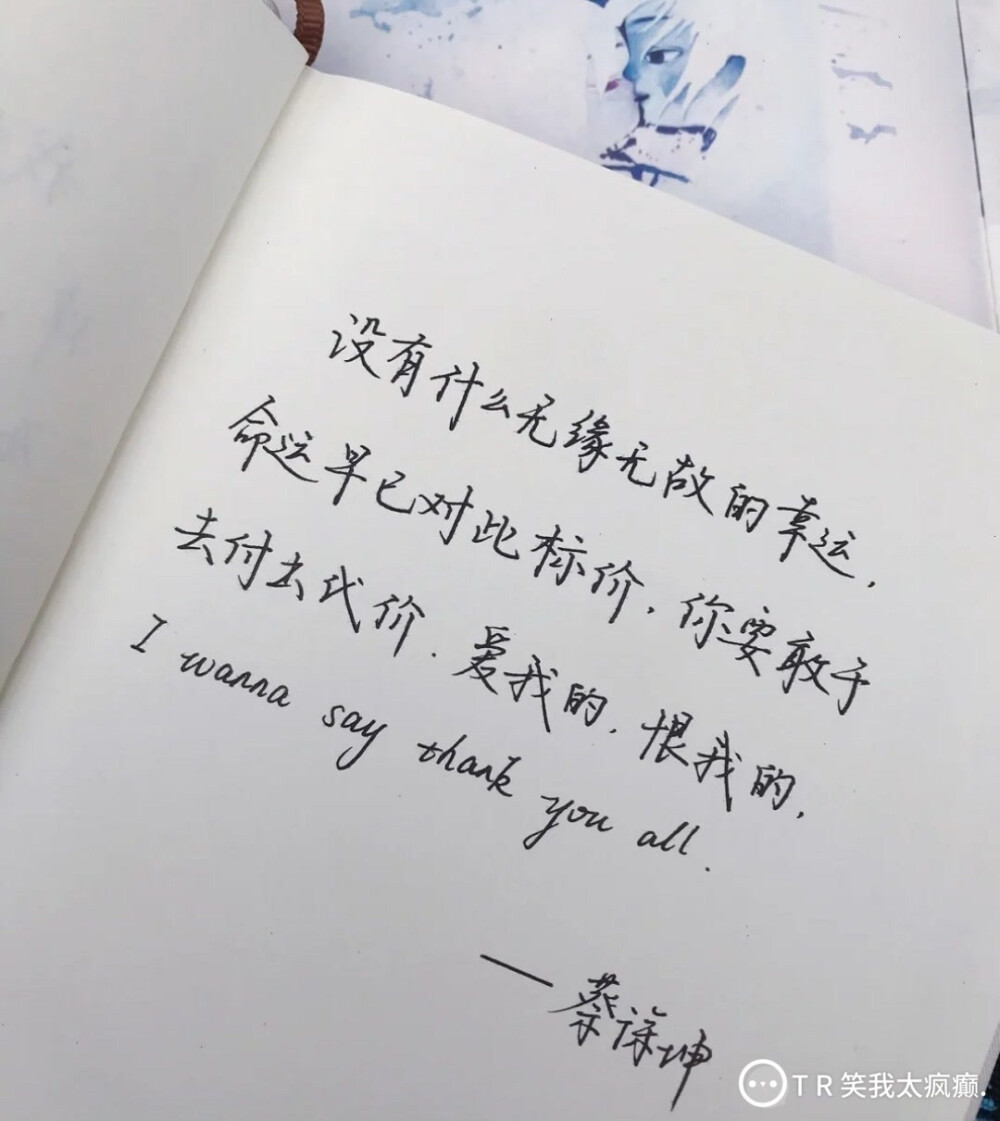 没有什么无缘无故的幸运，
命运早已对此标价，你要敢于
去付出代价．爱我的，恨我的，
I wanna say thank you all.
—蔡徐坤
TR笑我太疯癫.